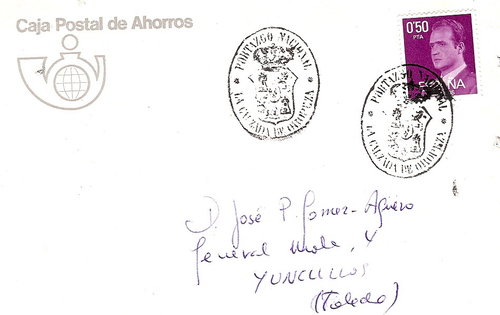 Caja Postal de Ahorros
* PORTAZGO NACIONAL *
LA CALZADA DE OROPEZA
0'50
PTA
ESPAÑA
* PORTAZGO NACIONAL *
LA CALZADA DE OROPEZA
D. José P. Gomez-Agüero
General Mola, 4
YUNCLILLOS
(Toledo)